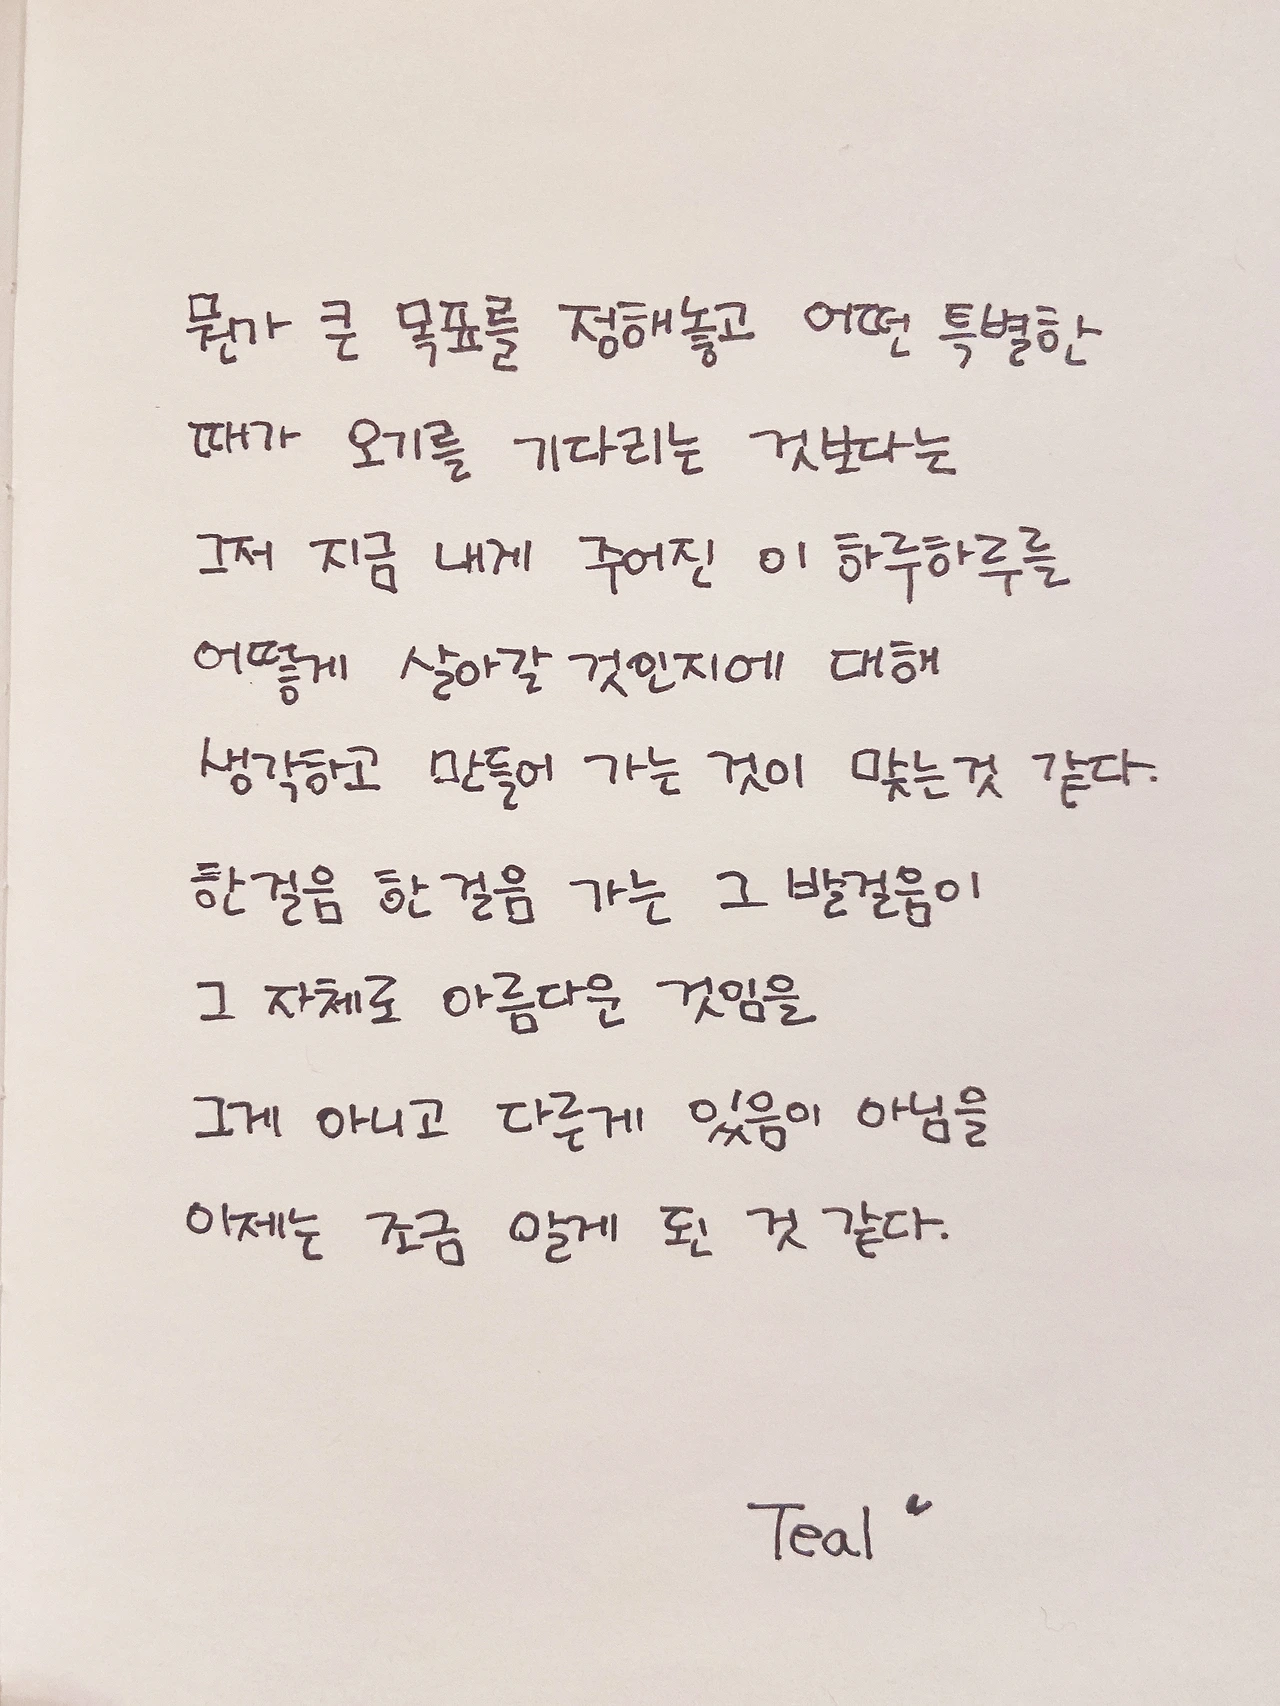 뭔가 큰 목표를 정해놓고 어떤 특별한
때가 오기를 기다리는 것보다는
그저 지금 내게 주어진 이 하루하루를
어떻게 살아갈 것인지에 대해
생각하고 만들어 가는 것이 맞는것 같다.
한걸음 한걸음 가는 그 발걸음이
그 자체로 아름다운 것임을
그게 아니고 다른게 있음이 아님을
이제는 조금 알게 된 것 같다.
Teal